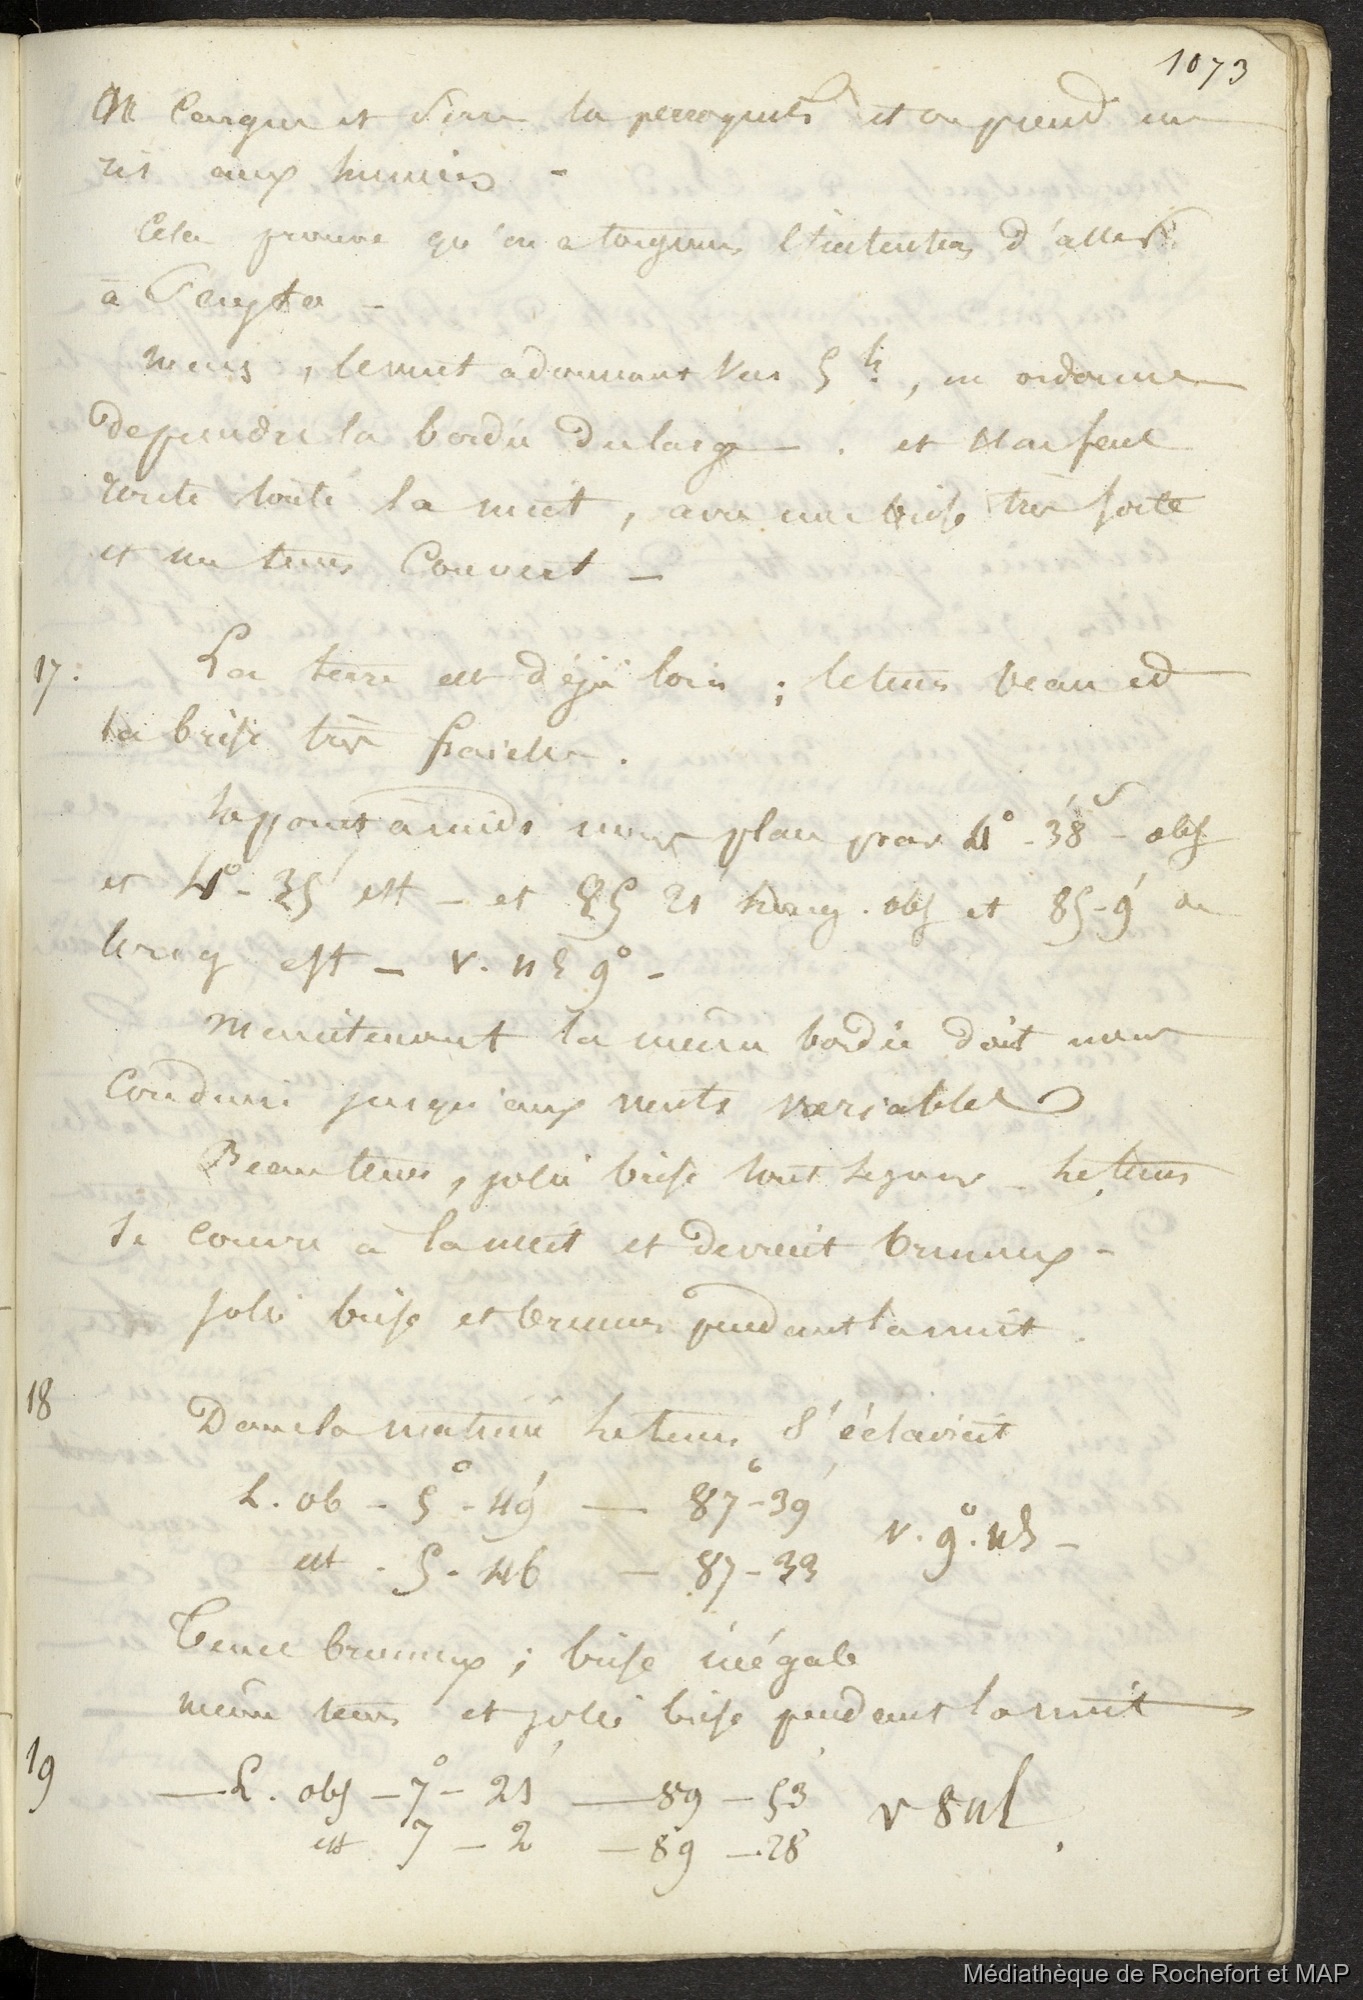 1073
On largue et serre les perroquets et on prend un
ris aux huniers -
Cela prouve qu'on a toujours l'intention d'aller
à Payta -
mais, le vent adonnant vers 5 h., on ordonne
de prendre la bordée du large - . et
route toute la nuit, avec une brise très forte
et un tems couvert -
17. La terre est déjà loin ; le tems beau et
la brise très fraiche .
Le point à midi nous place par 4° - 38' - obs
et 4° - 35' est - et 85 21 long . obs et 85 - 9' de
long est - v. n E 9° -
Maintenant la même bordée doit nous
conduire jusqu'aux vents variables
Beau tems, jolie brise tout le jour - le tems
se couvre à la nuit et devient brumeux -
Jolie brise et brumes pendant la nuit .
18 Dans la matinée le tems s'éclaircit
L. ob - 5° - 49' — 87° - 39'
v. 9°. n E -
est - 5 - 46 — 87 - 33
Tems brumeux ; brise inégale
même tems et jolie brise pendant la nuit
19 — L. obs - 7° - 21' — 89 - 53'
v 8 n E .
est 7 - 2 — 89 - 28
Médiathèque de Rochefort et MAP